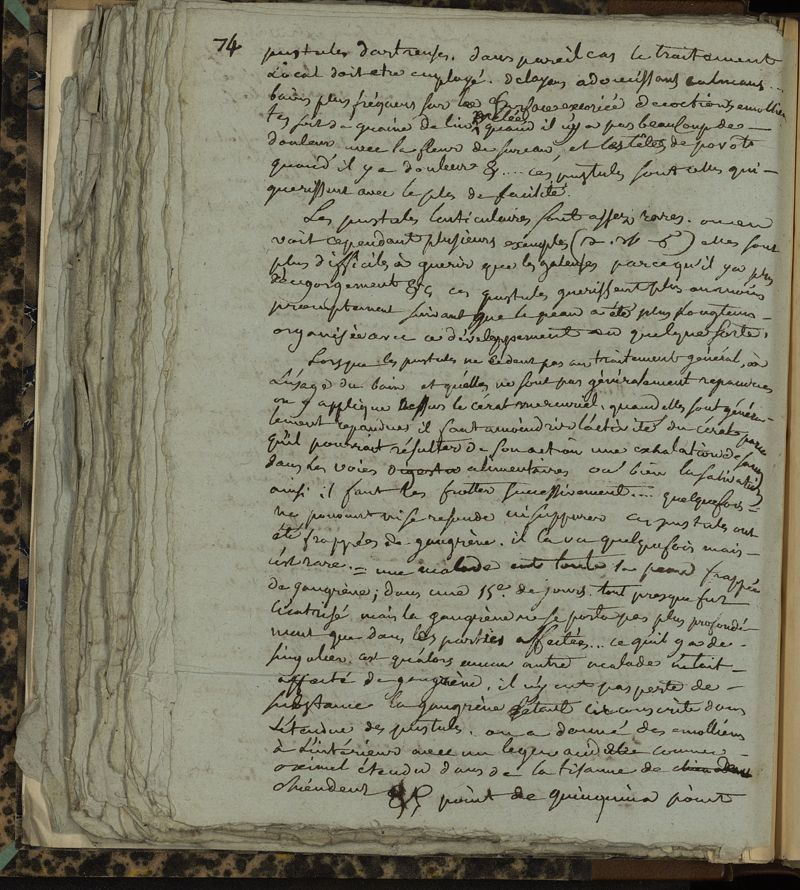 74
pustules dartreuses. dans pareil cas le traitement
Local doit etre employé. delayans adoucissans calmans...
bains plus fréquens sur les surfaces decoctions emollien
tes soit de graine de lin quand il n'y a pas beaucoup de
douleur avec la fleur de sureau, et les têtes de pavots
quand il y a douleur &.... ces pustules sont celles qui
guerissent avec le plus de facilité.
Les pustules lenticulaires sont assez rares. on en
voit cependant plusieurs exemples elles sont
plus difficiles à guerir que les galeuses parcequ'il y a plus
d'engorgement &c ces pustules guerissent plus ou moins
promptement suivant que la peau a été plus longtems
organisée avec ce développement en quelque sorte.
Lorsque les pustules ne cèdent pas au traitement général, à
L'usage du bain et quelles ne sont pas généralement repandues
on applique dessus le cérat mercuriel. quand elles sont généra-
lement repandues il faut amoindrir l'activité du cerat parce
qu'il pourrait résulter de son action une exhalation de sang
dans les voies digest alimentaires ou bien la salivation
ainsi il faut les frotter successivement.... quelquefois
ne pouvant ni se resoudre ni suppurer ces pustules ont
été frappées de gangrène. il l'a vu quelquefois mais
c'est rare. = une malade eut toute la peau frappée
de gangrène; dans une 15e. de jours tout presque fut
cicatrisé. mais la gangrène ne se porta pas plus profondé
ment que dans les parties affectées... ce qu'il y a de
singulier est qu'alors aucun autre malade n'etait
affecté de gangrène. il n'y eut pas perte de
substance la gangrène etait circonscrite dans
L'étendue des pustules. on a donné des emolliens
à L'intérieur avec un leger acidule comme
oximel étendu dans de la tisanne de chiendent
chiendent &c point de quinquina point